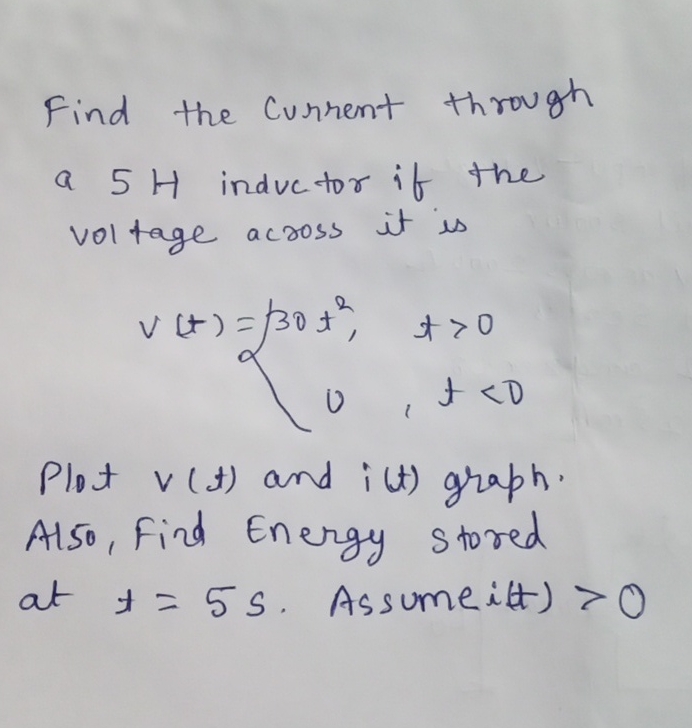 Find the Current through
a 5 H inductor if the
voltage across it is
v(t) = { 30 t², t > 0
0 , t < 0
Plot v(t) and i(t) graph.
Also, Find Energy stored
at t = 5 s. Assume i(t) > 0